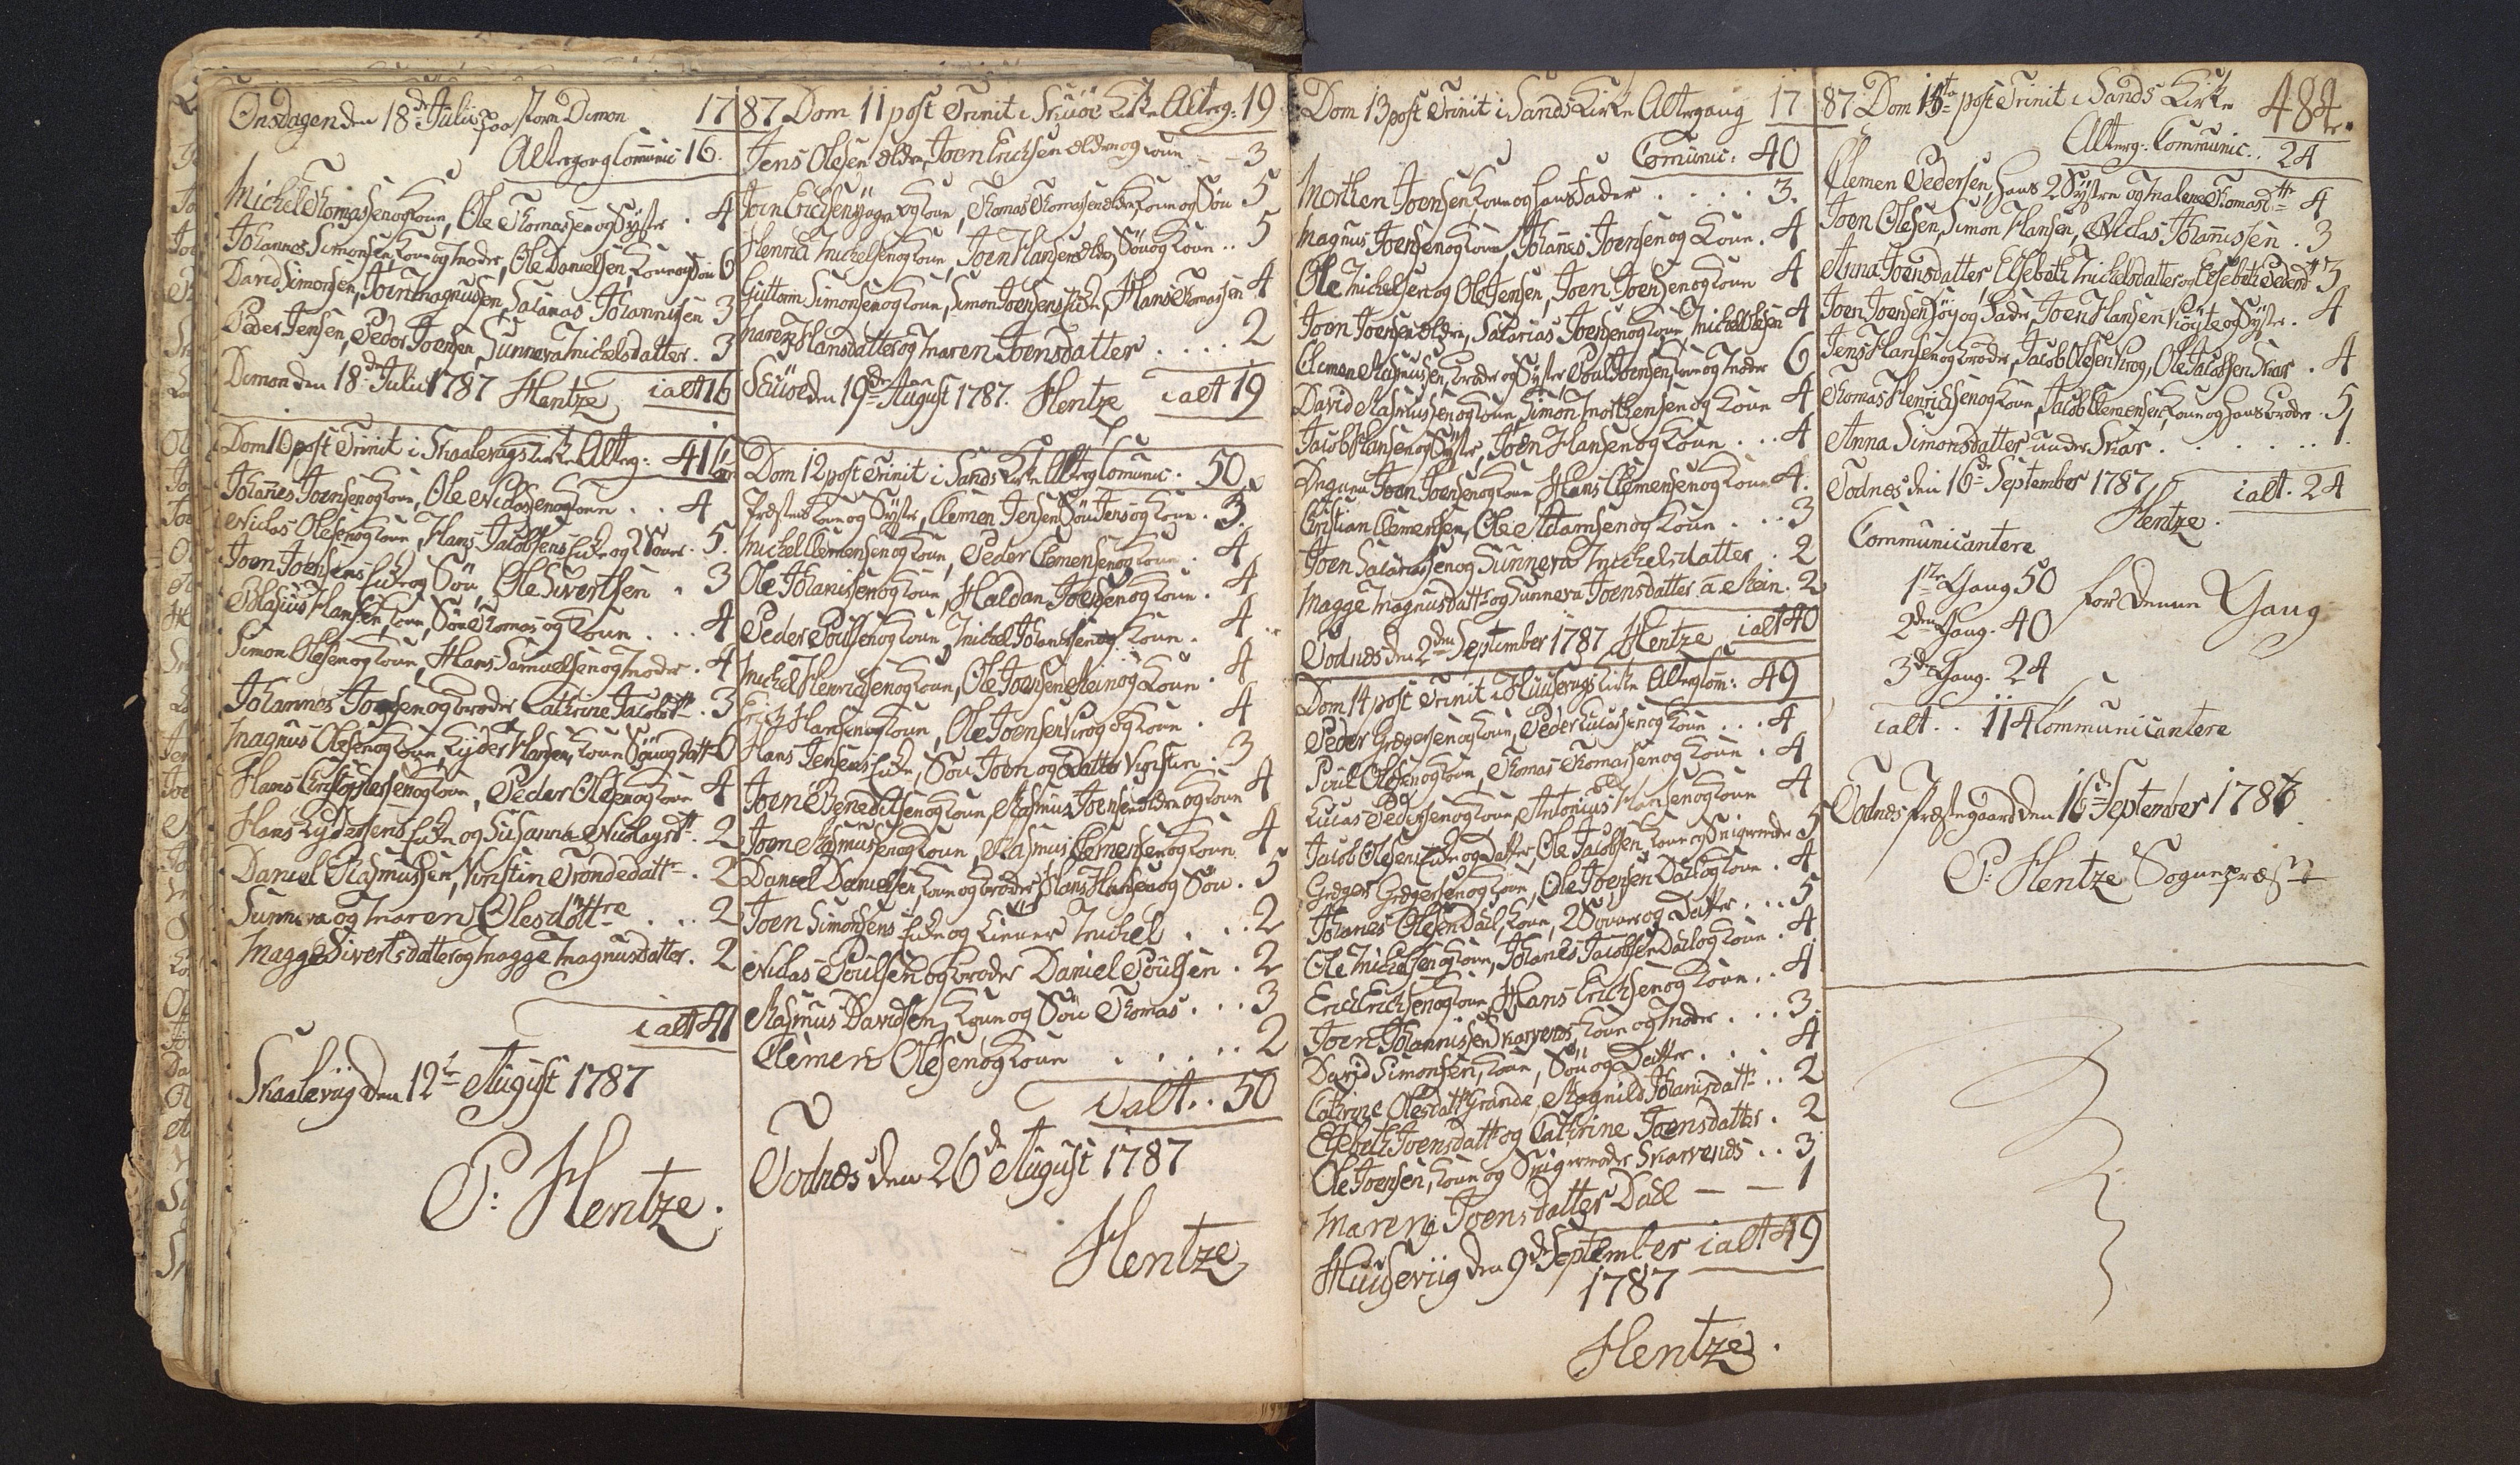 Onsdagen den 18de Julii paa Storn Dimon 17
Altergang Comunic 16.
Michel Thomasen og Kone, Ole Thomasen og Syster . 4
Johannes Simonsen, Kone og Moder, Ole Danielsen, Kone og Søn 6
David Simonsen, Joen Magnusen, Sacarias Johannisen 3
Peder Jensen, Peder Joensen, Sunneva Michelsdatter . 3
Dimon den 18de Julii 1787 Hentze ialt 16
Dom 10 post Trinit i Skaalevigs Kirke Alterg: 41
Johanes Joensen og Kone, Ole Niclasen og Kone . . 4
Niclas Olesen og Kone, Hans Jacobsens Enke og 2 Sønner . 5.
Joen Joensens Enke og Søn, Ole Sivertsen . 3
Blasius Hansen, Kone, Søn Thomas og Kone . . . 4
Simon Olesen og Kone, Hans Samuelsen og Moder . 4
Johannes Joensen og broder Cathrine Jacobsdtt . 3
Magnus Olesen og Kone, Lyder Hansen, Kone Søn og Datt 6
Hans Christophersen og Kone, Peder Olesen og Kone 4
Hans Lydersens Enke og Susanna Nicolaysdtt . 2
Daniel Rasmussen, Kirstin Trondedattr . 2
Sunneva og Maren Olesdøttre . . . 2
Magge Sivertsdatter og Magge Magnusdatter . 2
ialt 41
Skaalevig den 12te August 1787
P: Hentze.
87 Dom 11 post Trinit i Skuöe Kirke Alterg: 19
Jens Olesen Elder, Joen Erichsen elder og Kone - - 3
Joen Erichsen ÿnger og Kone, Thomas Thomassen elder Kone og Søn 5
Henrich Michelsen og Kone, Joen Hansen elder, Søn og Kone . . 5
Guttorm Simonsen og Kone, Simon Joensens Enke, Hans Thomassen 4
Maren Hansdatter og Maren Joensdatter . . . . 2
Skuöe den 19de August 1787. Hentze ialt 19
Dom 12 post Trinit i Sands Kirke Alterg Comunic . 50
Præstens Kone og Syster, Clemen Jensen Søn Jens og Kone . 3.
Michel Clemensen og Kone, Peder Clemensen og Kone . 4
Ole Johanisen og Kone, Haldan Joensen og Kone . 4
Peder Poulsen og Kone, Michel Johannesen og Kone . 4
Michel Henrichsen og Kone, Ole Joensen Stein og Kone . 4
Erich Hansen og Kone, Ole Joensen Krog og Kone . 4
Hans Jensens Enke, Søn Joen og Datter Kirstin . 3
Joen Benedictsen og Kone, Rasmus Joensen elder og Kone 4
Joen Rasmussen og Kone, Rasmus Clemensen og Kone 4
Daniel Danielsen, Kone og broder, Hans Hansen og Søn . 5
Joen Simonsens Enke og Tiener Michel . . . 2
Niclas Poulsen og broder Daniel Poulsen . 2
Rasmus Davidsen, Kone og Søn Thomas . . . 3
Clemen Olesen og Kone . . . . . 2
ialt . . 50
Todnes den 26de August 1787
Hentze
Dom 13 post Trinit i Sands Kirke Altergang 17
Comunic: 40
Morthen Joensen, Kone og hans Fader . . . . 3.
Magnus Joensen og Kone, Johannes Joensen og Kone . 4
Ole Michelsen og Ole Jensen, Joen Joensen og Kone 4
Joen Joensen elder, Sacarias Joensen og Kone, Michel Olesen 4
Clemen Rasmussen, broder og Syster, Poul Joensen, Kone og Moder 6
David Rasmussen og Kone, Simon Morthensen og Kone 4
Jacob Hansen og Syster, Joen Hansen og Kone . . . 4
Degnen Joen Joensen og Kone, Hans Clemensen og Kone 4.
Christian Clemensen, Ole Adamsen og Kone . . . 3
Joen Sacariasen og Sunneva Michelsdatter . 2
Magge Magnusdattr og Sunneva Joensdatter a Stein . 2
Todnes den 2den September 1787 Hentze ialt 40
Dom 14 post Trinit i Huusevigs Kirke Alterg Com: 49
Peder Gregersen og Kone, Peder Lucassen og Kone . . . 4
Poul Olesen og Kone, Thomas Thomassen og Kone . 4
Lucas Pedersen og Kone, Antonius Hansen og Kone 4
Jacob Olesens Enke og Datter, Ole Jacobsen, Kone og Svigermoder 5
Greger Gregersen og Kone, Ole Joensen Dall og Kone . 4
Johanes Olesen Dall, Kone, 2 Sønner og Datter . . . 5
Ole Michelsen og Kone, Johanes Jacobsen Dall og Kone . 4
Erich Erichsen og Kone, Hans Erichsen og Kone . . 4
Joen Johannissen Skarvenes, Kone og Moder . . . 3.
David Simonsen, Kone, Søn og Datter . . . 4
Cathrine Olesdattr Grande, Ragnild Johanisdattr . . 2
Elsebeth Joensdattr og Cathrine Joensdatter . 2
Ole Joensen, Kone og Svigermoder Skarvenes . . 3
Maren Joensdatter Dall — — 1
Huusevig den 9de September ialt 49
1787
Hentze.
87 Dom 15ta post Trinit i Sands Kirke 484
Alterg: Communic . . 24
Clemen Pedersen, hans 2 Systre og Malene Thomasdtr 4
Joen Olesen, Simon Hansen, Niclas Johannissen . 3
Anna Joensdatter Elsebeth Michelsdatter og Elsebeth Pedersdtt 3
Joen Joensen Høy og Fader, Joen Hansen og Syster . 4
Jens Hansen og broder, Jacob Olesen Krog, Ole Jacobsen Skar . 4
Thomas Henrichsen og Kone, Jacob Clemensen, Kone og hans broder . 5
Anna Simonsdatter under Skar . . . . . . 1.
Todnes den 16de September 1787 ialt. 24
Hentze.
Communicantere
1ste Gang 50
2den Gang . 40 for denne Gang
3de Gang . 24
ialt . . 114 Communicantere
Todnes Præstegaard den 16de September 1787
P: Hentze Sognepræst